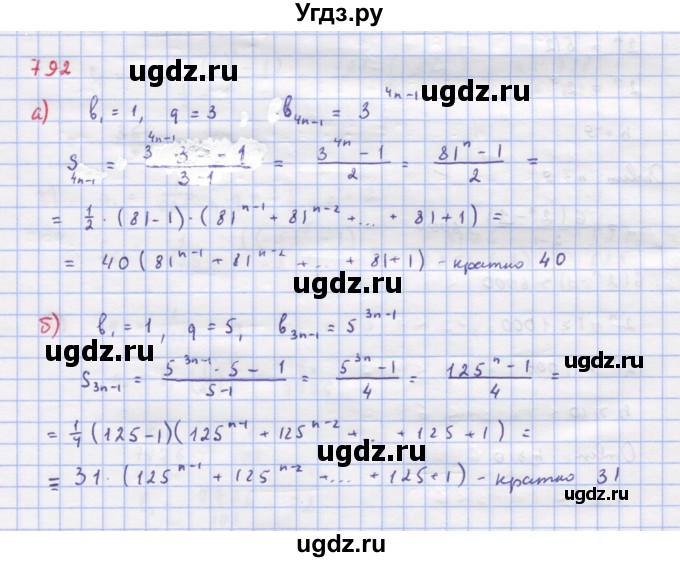 Угдз.ру
792
ugdz.ru ugdz.ru
а) b₁ = 1, q = 3 b₄ₙ₋₁ = 3⁴ⁿ⁻¹
S₄ₙ₋₁ = (3⁴ⁿ⁻¹ · 3 - 1)/(3-1) = (3⁴ⁿ - 1)/2 = (81ⁿ - 1)/2 =
ugdz.ru ugdz.ru
= 1/2 · (81-1) · (81ⁿ⁻¹ + 81ⁿ⁻² + ... + 81 + 1) =
ugdz.ru
= 40 (81ⁿ⁻¹ + 81ⁿ⁻² + ... + 81+1) - кратно 40
ugdz.ru
б) b₁ = 1, q = 5, b₃ₙ₋₁ = 5³ⁿ⁻¹
ugdz.ru ugdz.ru
S₃ₙ₋₁ = (5³ⁿ⁻¹ · 5 - 1)/(5-1) = (5³ⁿ - 1)/4 = (125ⁿ - 1)/4 =
= 1/4 (125-1)(125ⁿ⁻¹ + 125ⁿ⁻² + ... + 125 + 1) =
ugdz.ru
= 31 · (125ⁿ⁻¹ + 125ⁿ⁻² + ... + 125+1) - кратно 31
ugdz.ru
ugdz.ru